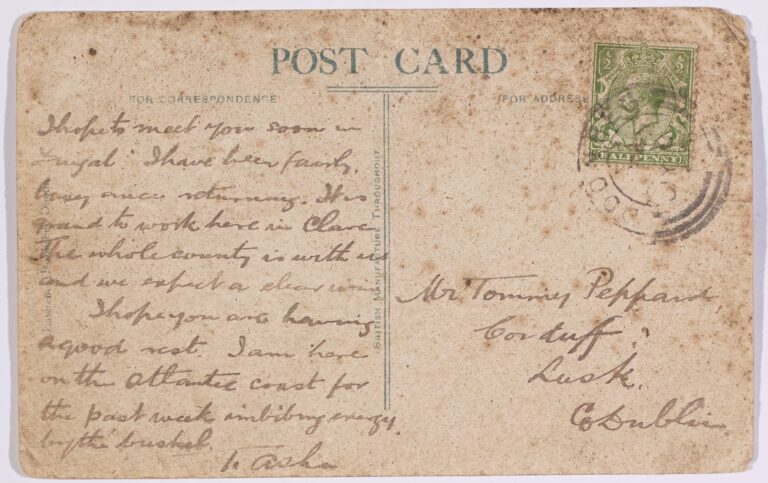 POST CARD
FOR CORRESPONDENCE
(FOR ADDRESS
HALFPENNY
I hope to meet you soon in
Fingal. I have been fairly
busy since returning. It is
grand to work here in Clare
The whole county is with us
and we expect a clear win
I hope you are having
a good rest. I am here
on the Atlantic coast for
the past week imbibing energy
by the bushel.
T. Ashe
BRITISH MANUFACTURE THROUGHOUT
Mr. Tommy Peppard,
Corduff,
Lusk,
Co Dublin.